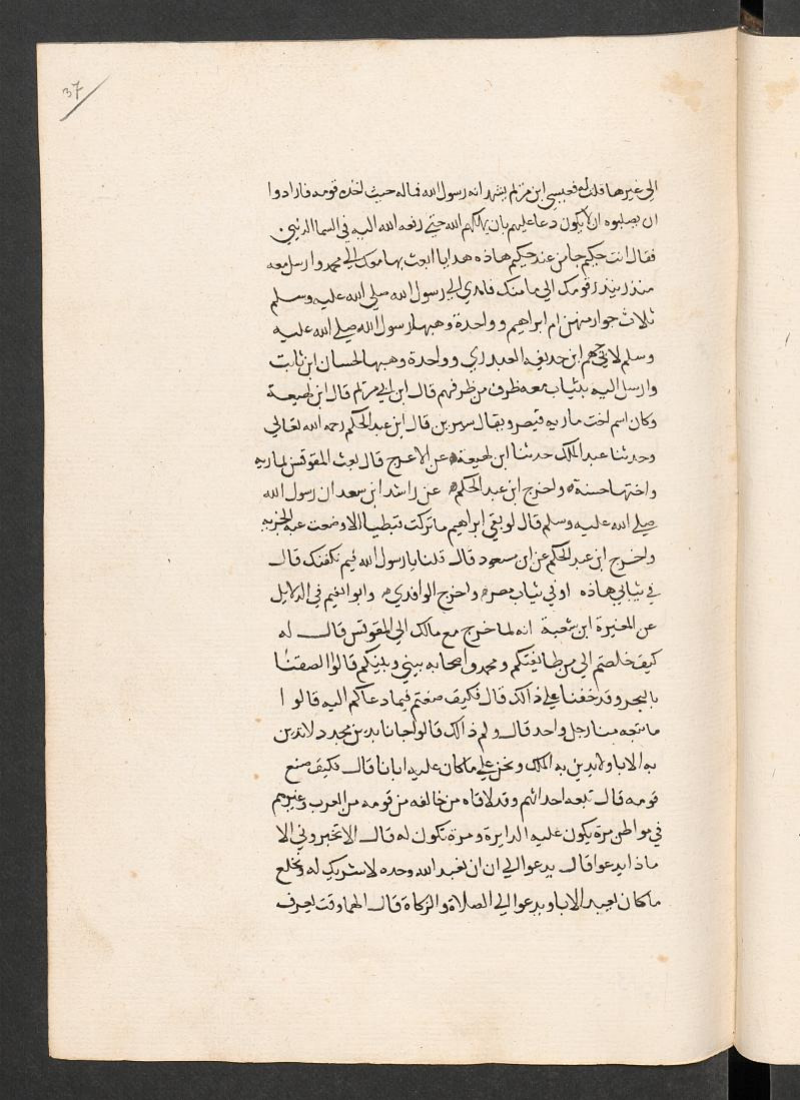 37
الى غيرها قلت له فعيسى ابن مريم يشهد انه رسول الله فماله حيث اخذه قومه فارادوا
ان يصلبوه ان لا يكون دعا عليهم بان يهلكهم الله حتى رفعه الله اليه في السما الدنيى
فقال انت حكيم جا من عند حكيم هاذه هدايا ابعث بها معك الى محمد وارسل معه
منذر ينذرقومك الى مامنك فاهدى الى رسول الله صلى الله عليه وسلم
ثلاث جوار منهن ام ابراهيم وواحدة وهبها رسول الله صلى الله عليه
وسلم لابي جهم ابن حذيفه العبدري وواحدة وهبها لحسان ابن ثابت
وارسل اليه بثياب معه ظرف من ظرفهم قال ابن ابي مريم قال ابن لهيعة
وكان اسم اخت ماريه قيصر ويقال سيرين قال ابن عبد الحكم رحمه الله تعالى
وحدثنا عبد الملك حدثنا ابن لهيعة عن الاعرج قال بعث المقوقس لماريه
واختها حسنة واخرج ابن عبد الحكم عن راشد ابن سعد ان رسول الله
صلى الله عليه وسلم قال لو بقي ابراهيم ما تركت قبطيا الا وضعت عنه الجزيه
واخرج ابن عبد الحكم عن ابن مسعود قال قلنا يا رسول الله فيم نكفنك قال
في ثيابي هاذه او في ثياب مصر واخرج الواقدي وابو نعيم في الدلايل
عن المغيرة ابن شعبة انه لما خرج مع مالك الى المقوقس قال له
كيف خلصتم الي من طايفتكم ومحمد واصحابه بيني وبينكم قالوا الصقنا
بالبحر وقد خفنا على ذالك قال فكيف صنعتم فيما دعاكم اليه قالوا
ما تبعه منا رجل واحد قال ولم ذالك قالوا جانا بدين مجدد لا تدين
به الابا ولا يدين به الملك ونحن على ما كان عليه ابانا قال فكيف صنع
قومه قال تبعه احداثهم وقد لاقاه من خالفه من قومه من العرب وغيرهم
في مواطن مرة يكون عليه الدايرة ومرة تكون له قال الا تخبروني الا
ماذا يدعوا قال يدعوا الى ان ان نعبد الله وحده لا شريك له ونخلع
ما كان يعبد الابا ويدعوا الى الصلاة والزكاة قال الهما وقت يعرف